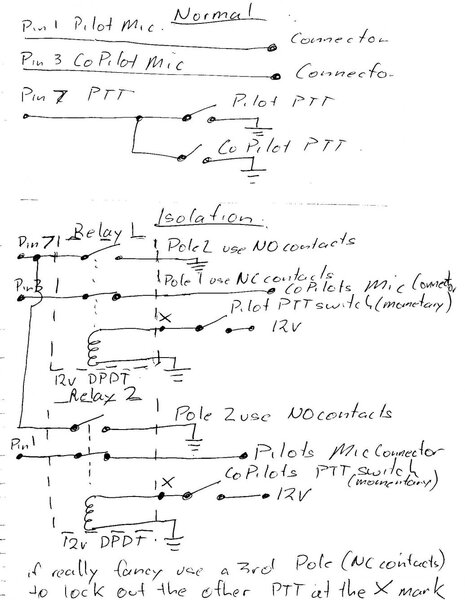 Normal
Pin 1 Pilot Mic.
Connector
Pin 3 CoPilot Mic
Connector
Pin 7 PTT
Pilot PTT
CoPilot PTT
Isolation
Pin 7
Relay 1
Pole 2 use NO contacts
Pin 3
Pole 1 use NC contacts
CoPilots Mic Connector
Pilot PTT switch (mometary)
X
12V
12v DPDT
Relay 2
Pole 2 use NO contacts
Pin 1
Pilots Mic Connector
CoPilots PTT switch
(momentary)
X
12V
12v DPDT
if really fancy use a 3rd Pole (NC contacts)
to lock out the other PTT at the X mark